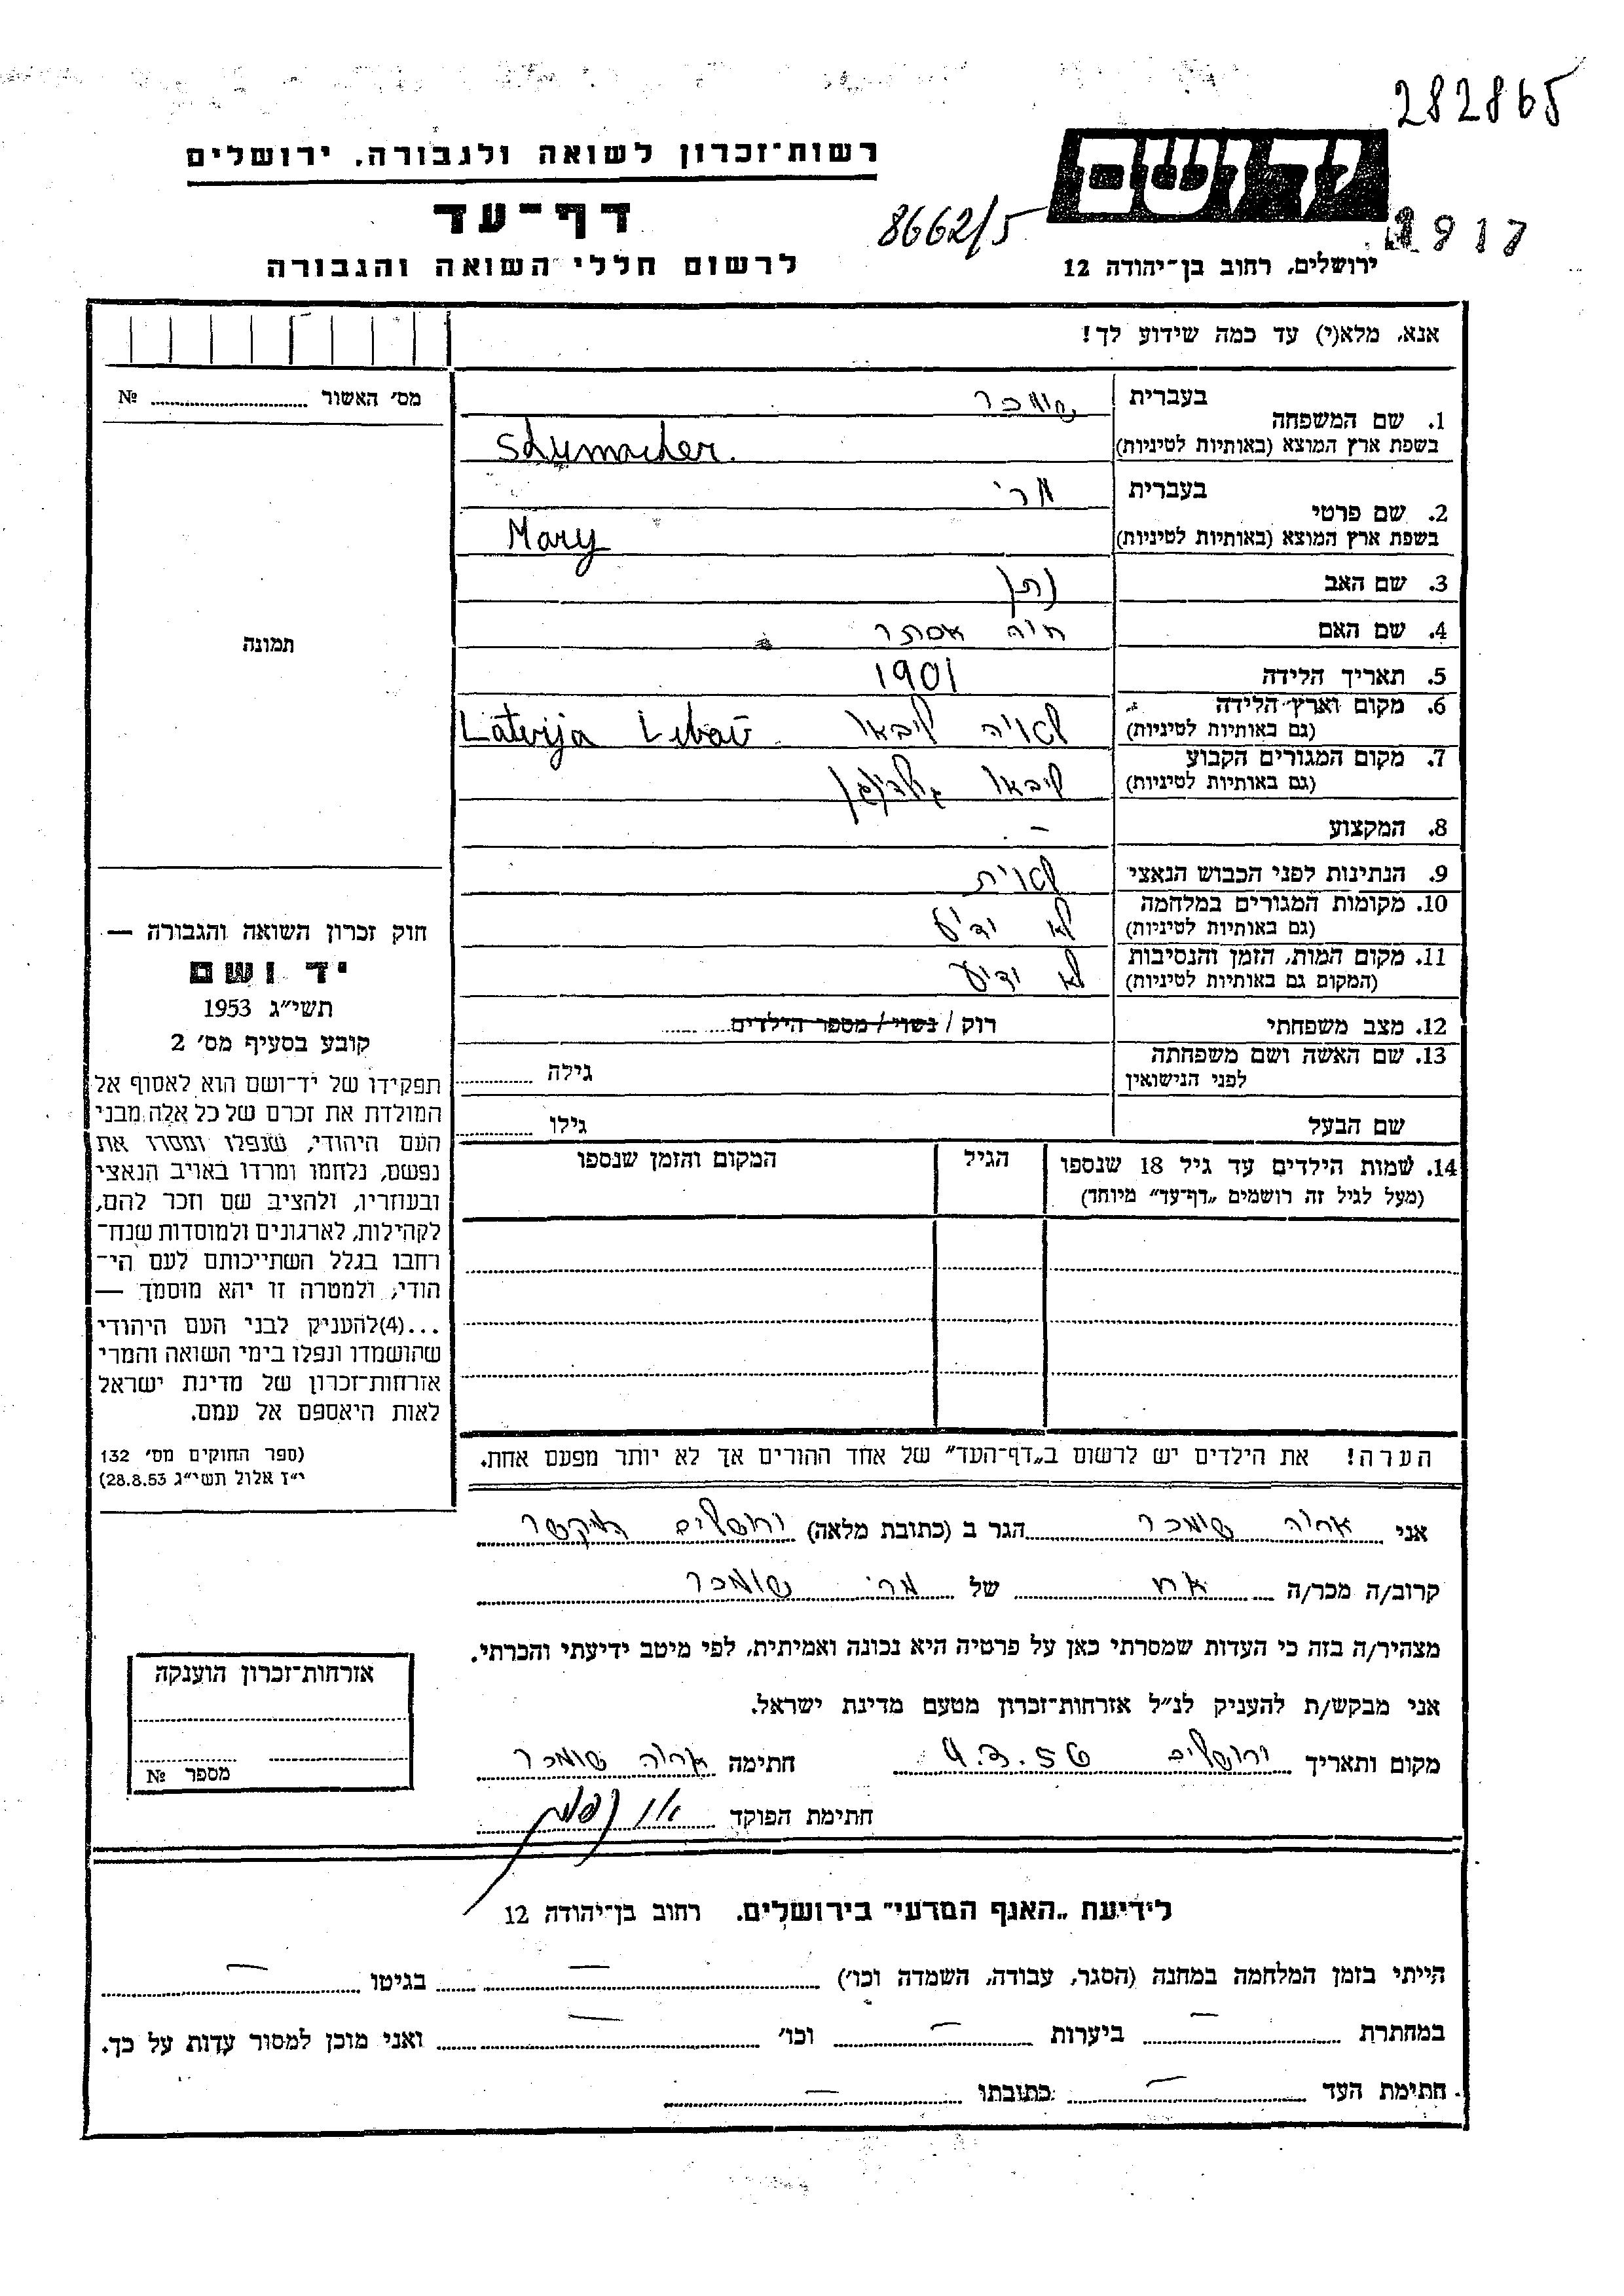 282865
רשות־זכרון לשואה ולגבורה, ירושלים
יד ושם
דף־עד
8662/5
917
לרשום חללי השואה והגבורה
ירושלים, רחוב בן־יהודה 12
אנא, מלא(י) עד כמה שידוע לך!
מס׳ האשור № 
1. שם המשפחה בעברית שומכר
בשפת ארץ המוצא (באותיות לטיניות) Schumacher.
2. שם פרטי בעברית מרי
בשפת ארץ המוצא (באותיות לטיניות) Mary
3. שם האב נתן
4. שם האם חיה אסתר
5. תאריך הלידה 1901
6. מקום וארץ הלידה לטויה ליבאו Latvija Libau
(גם באותיות לטיניות)
7. מקום המגורים הקבוע ליבאו
(גם באותיות לטיניות)
8. המקצוע —
9. הנתינות לפני הכבוש הנאצי לטוית
10. מקומות המגורים במלחמה לא ידוע
(גם באותיות לטיניות)
11. מקום המות, הזמן והנסיבות לא ידוע
(המקום גם באותיות לטיניות)
12. מצב משפחתי רוק / נשוי / מספר הילדים
13. שם האשה ושם משפחתה
לפני הנישואין גילה
שם הבעל גילו
14. שמות הילדים עד גיל 18 שנספו הגיל המקום והזמן שנספו
(מעל לגיל זה רושמים „דף־עד״ מיוחד)
תמונה
חוק זכרון השואה והגבורה —
יד ושם
תשי״ג 1953
קובע בסעיף מס׳ 2
תפקידו של יד־ושם הוא לאסוף אל
המולדת את זכרם של כל אלה מבני
העם היהודי, שנפלו ומסרו את
נפשם, נלחמו ומרדו באויב הנאצי
ובעוזריו, ולהציב שם וזכר להם,
לקהילות, לארגונים ולמוסדות שנח־
רחבו בגלל השתייכותם לעם הי־
הודי; ולמטרה זו יהא מוסמך —
...(4)להעניק לבני העם היהודי
שהושמדו ונפלו בימי השואה והמרי
אזרחות־זכרון של מדינת ישראל
לאות היאספם אל עמם.
(ספר החוקים מס׳ 132
י״ז אלול תשי״ג 28.8.53)
הערה! את הילדים יש לרשום ב„דף־העד״ של אחד ההורים אך לא יותר מפעם אחת.
אני שומכר הגר ב (כתובת מלאה) ירושלים
קרוב/ה מכר/ה אח של מרי שומכר
מצהיר/ה בזה כי העדות שמסרתי כאן על פרטיה היא נכונה ואמיתית, לפי מיטב ידיעתי והכרתי.
אני מבקש/ת להעניק לנ״ל אזרחות־זכרון מטעם מדינת ישראל.
מקום ותאריך ירושלים 9.3.56 חתימה שומכר
חתימת הפוקד
אזרחות־זכרון הוענקה
מספר №
לידיעת „האגף המדעי״ בירושלים, רחוב בן־יהודה 12
הייתי בזמן המלחמה במחנה (הסגר, עבודה, השמדה וכו׳) — בגיטו —
במחתרת — ביערות — וכו׳ — ואני מוכן למסור עדות על כך.
חתימת העד — כתובתו —